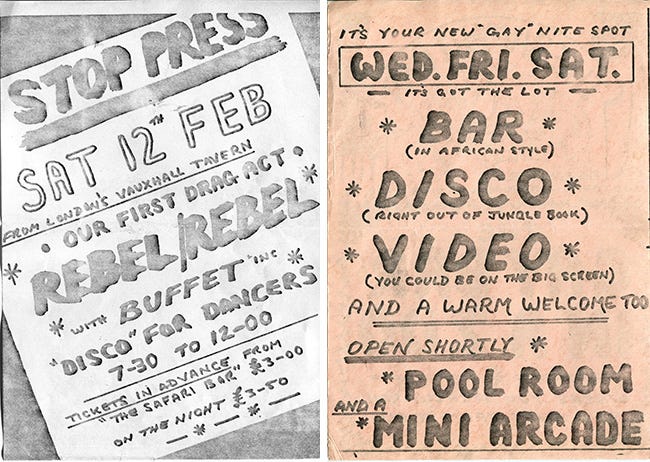 STOP PRESS
SAT 12TH FEB
FROM LONDON'S VAUXHALL TAVERN
• OUR FIRST DRAG ACT •
* REBEL/REBEL *
* WITH BUFFET "INC *
"DISCO" FOR DANCERS
7-30 TO 12-00
TICKETS IN ADVANCE FROM
"THE SAFARI BAR" £3-00
ON THE NIGHT £3-50
IT'S YOUR NEW "GAY" NITE SPOT
WED. FRI. SAT.
— IT'S GOT THE LOT —
* BAR *
(IN AFRICAN STYLE)
* DISCO *
(RIGHT OUT OF JUNGLE BOOK)
* VIDEO *
(YOU COULD BE ON THE BIG SCREEN)
AND A WARM WELCOME TOO
OPEN SHORTLY *
* POOL ROOM
AND A
* MINI ARCADE